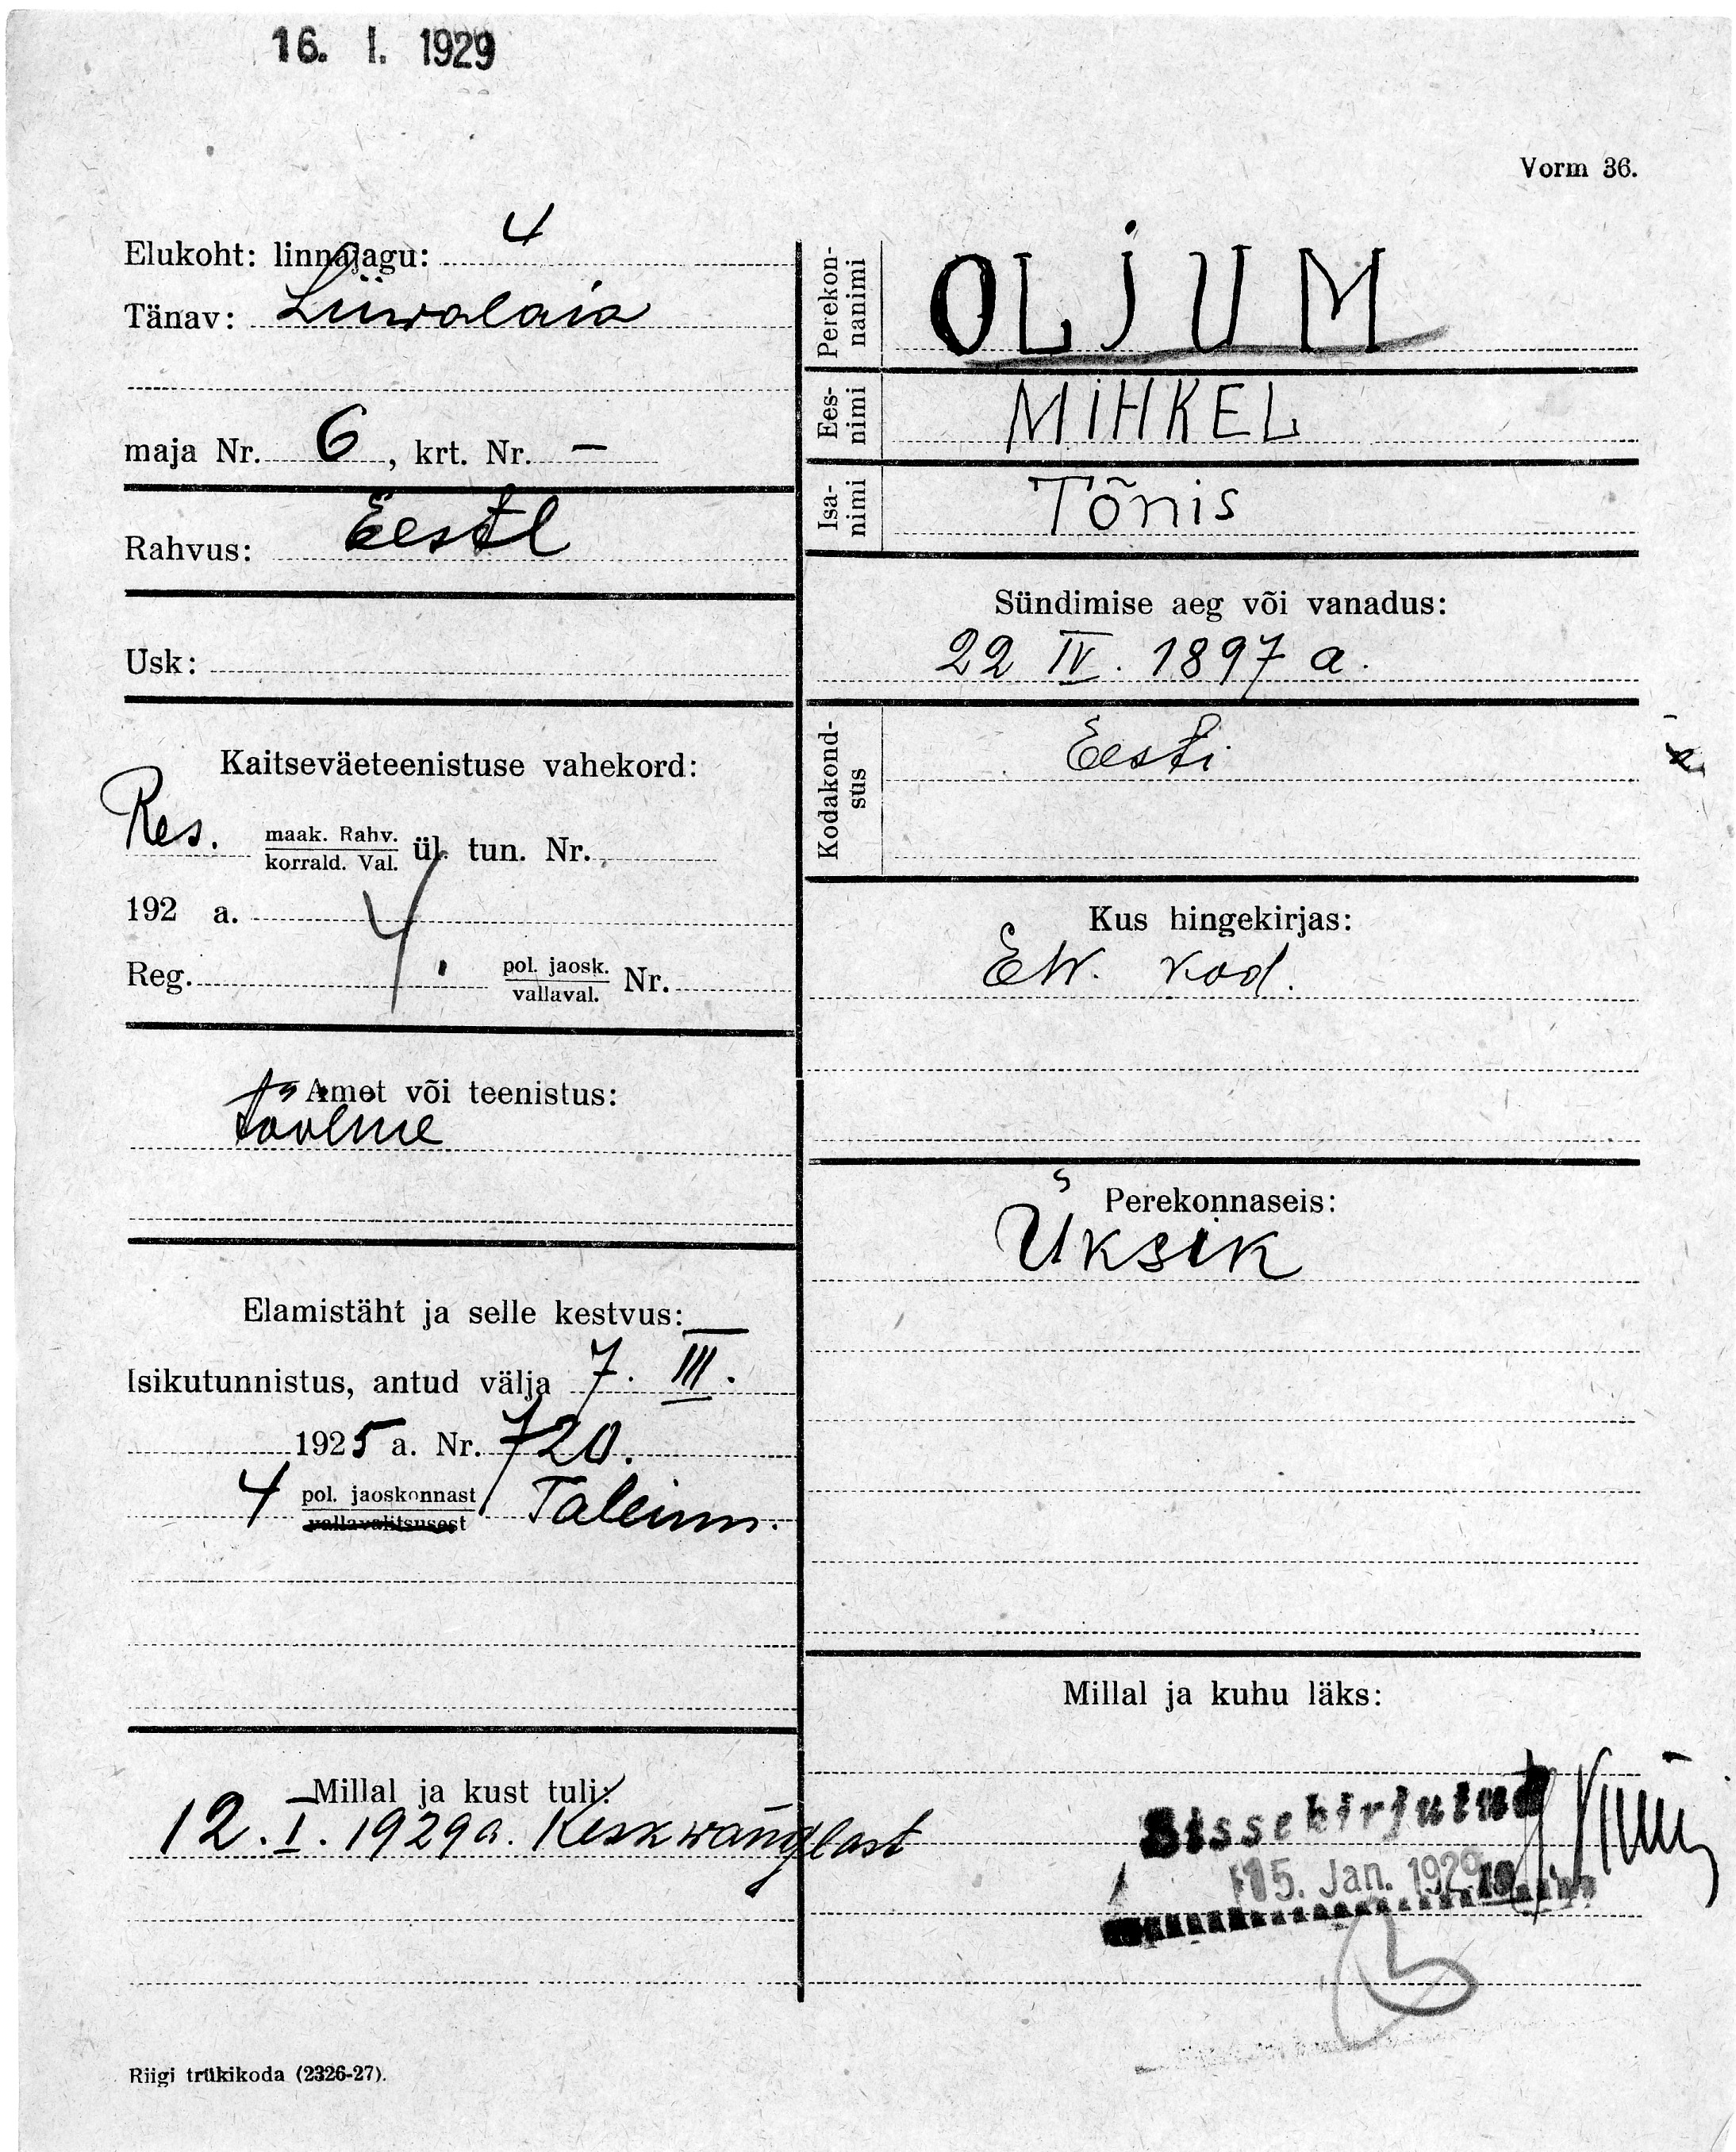 16. I. 1929
Vorm 36.
Elukoht: linnajagu: 4
Tänav: Liiwalaia
maja Nr. 6, krt. Nr. —
Rahvus: Eesti
Usk:
Kaitseväeteenistuse vahekord:
Res. maak. Rahv. korrald. Val. ül. tun. Nr.
192 a.
Reg. pol. jaosk. vallaval. Nr.
Amet või teenistus:
tööline
Elamistäht ja selle kestvus: —
Isikutunnistus, antud välja 7. III.
1925 a. Nr. 720.
4 pol. jaoskonnast vallavalitsusest Taleinn.
Millal ja kust tuli:
12. I. 1929 a. Keskwanglast
Riigi trükikoda (2326-27).
Perekonnanimi OLJUM
Eesnimi MIHKEL
Isanimi Tõnis
Sündimise aeg või vanadus:
22 IV. 1897 a.
Kodakondsus Eesti
Kus hingekirjas:
EW. kod.
Perekonnaseis:
Üksik
Millal ja kuhu läks:
Sissekirjutud
15. Jan. 1929